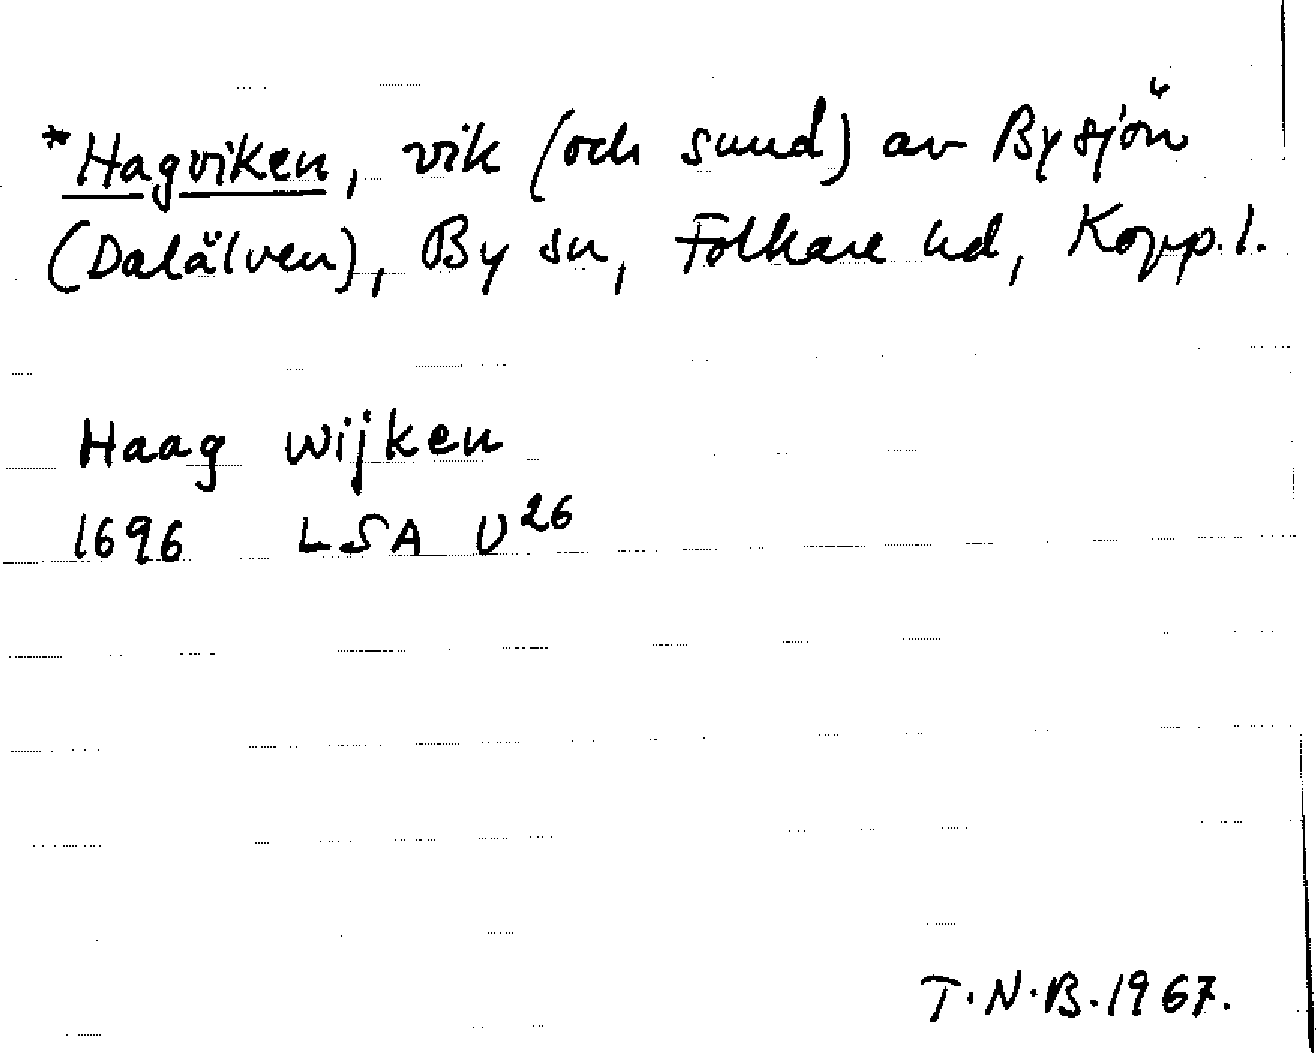 *Hagviken, vik (och sund) av Bysjön
(Dalälven), By sn, Folkare hd, Kopp.l.
Haag wijken
1696 LSA U²⁶
T.N.B.1967.